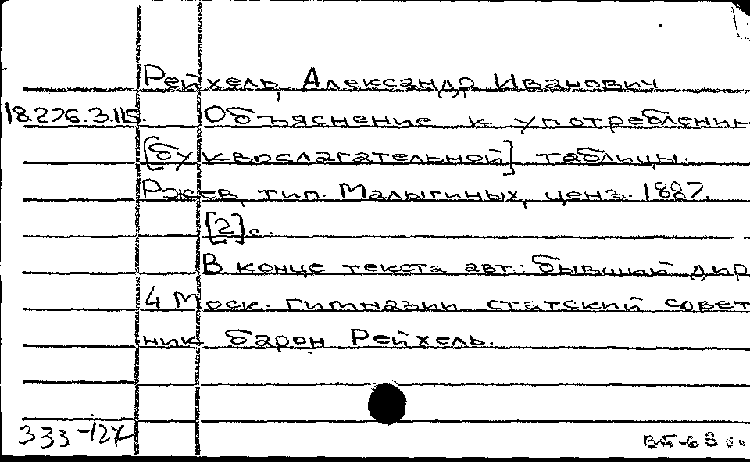 Рейхель, Александр Иванович
18.276.3.115. Объяснение к употреблению
[буквослагательной] таблицы.
Ржев, тип. Малыгиных, ценз. 1887.
[2] с.
В конце текста авт.: бывший дир.
4 Моск. гимназии статский совет-
ник барон Рейхель.
333-127